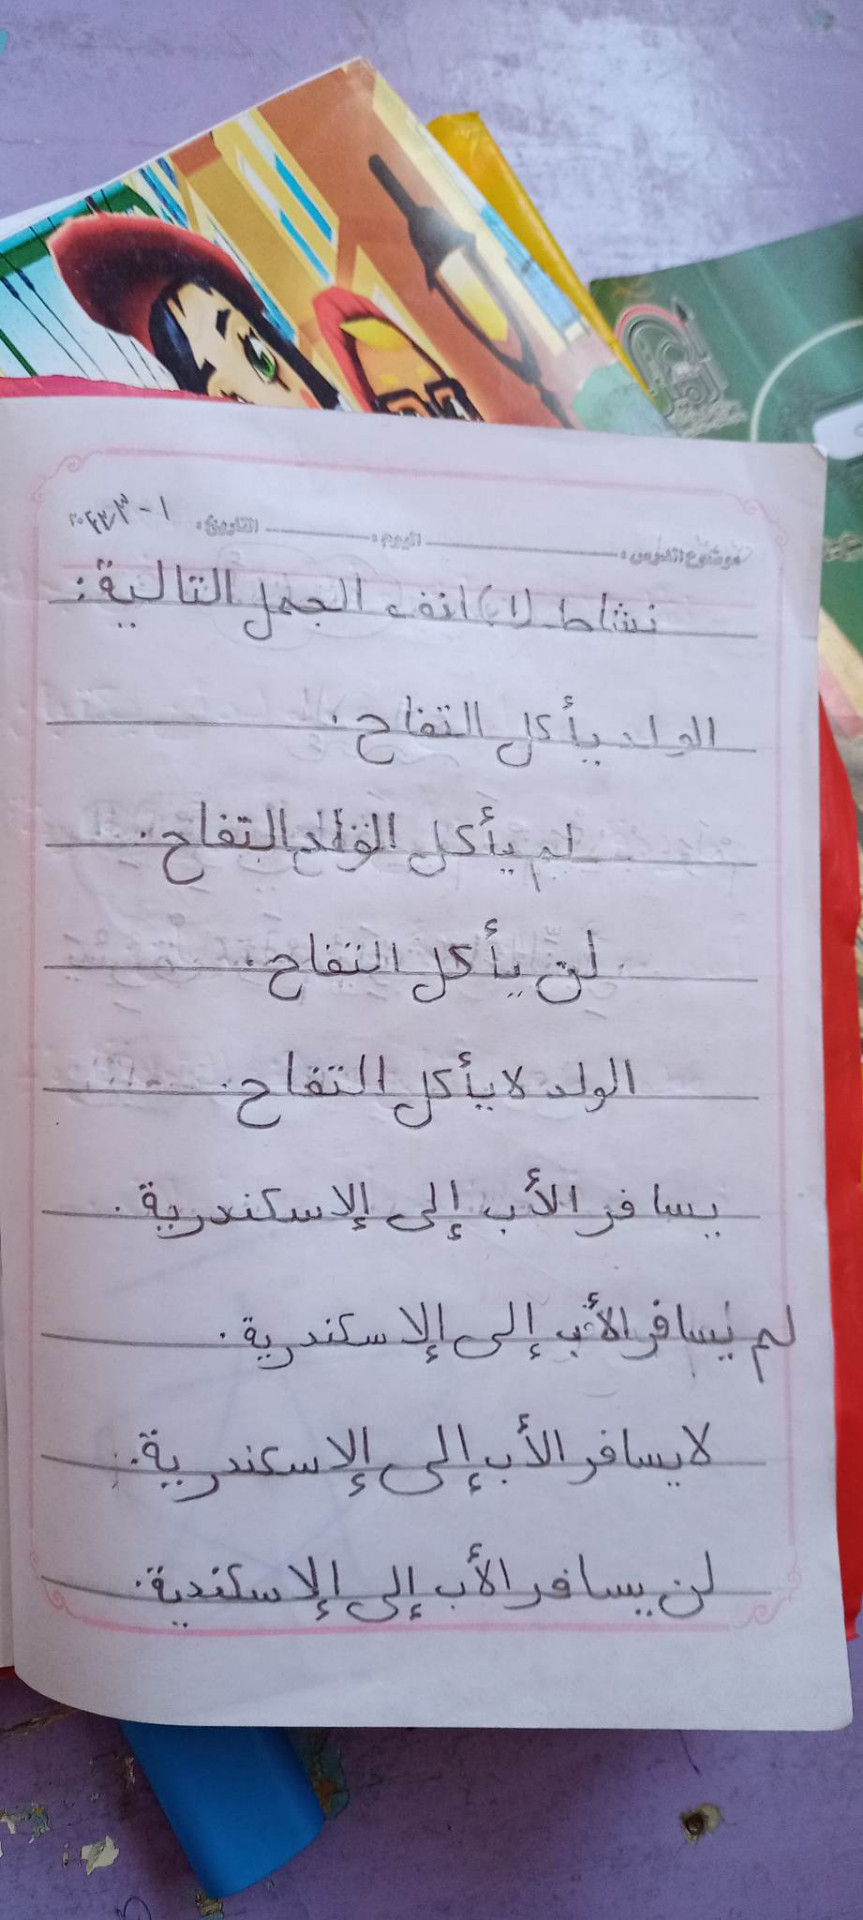 موضوع الدرس: اليوم: التاريخ:
نشاط (١) انف الجمل التالية:
الولد يأكل التفاح.
لم يأكل الولد التفاح.
لن يأكل التفاح.
الولد لا يأكل التفاح.
يسافر الأب إلى الإسكندرية.
لم يسافر الأب إلى الإسكندرية.
لا يسافر الأب إلى الإسكندرية.
لن يسافر الأب إلى الإسكندية.